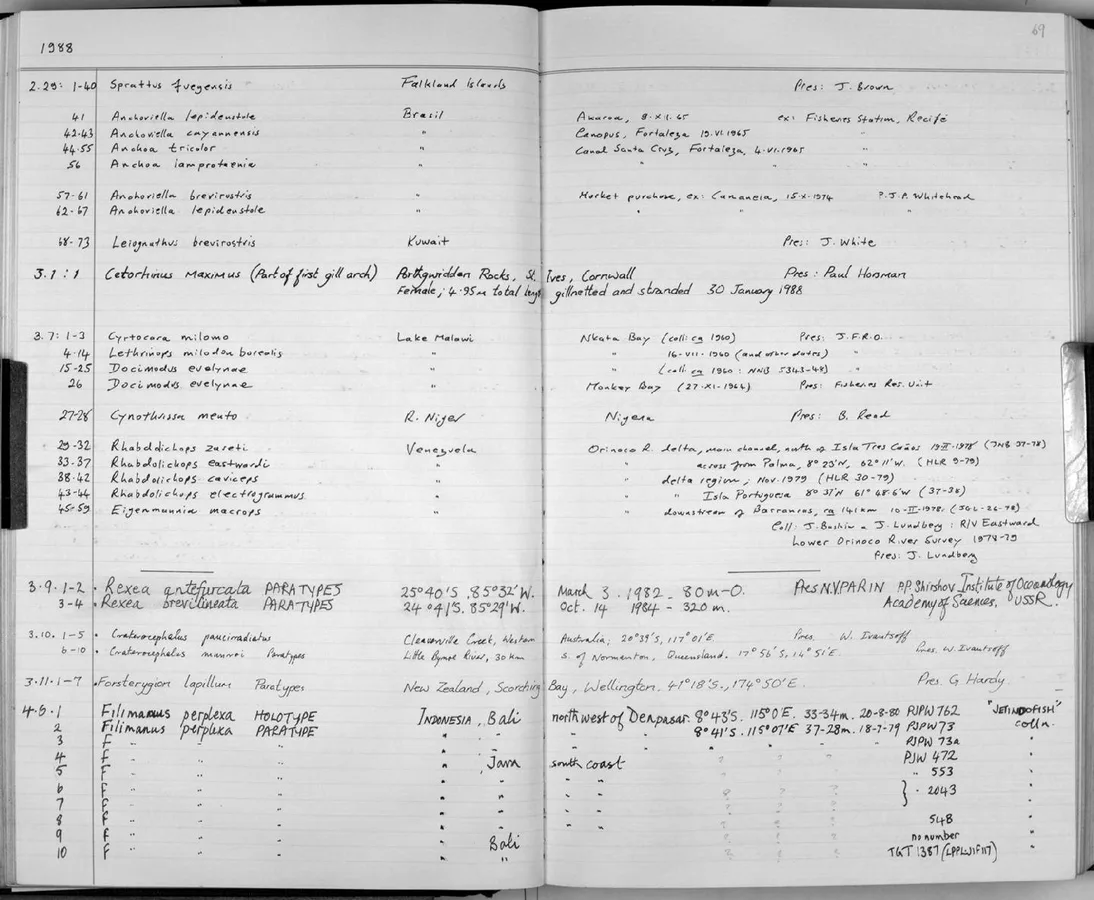 69
1988
2.29: 1-40 Sprattus fuegensis Falkland Islands Pres: J. Brown
41 Anchoviella lepidenstole Brasil 8.XII.65 ex: Fisheries Station, Recife
42-43 Anchoviella cayannensis " Canopus, Fortaleza 19.VI.1965 "
44-55 Anchoa tricolor " Canal Santa Cruz, Fortaleza, 4.VI.1965 "
56 Anchoa lamprotaenia " " " "
57-61 Anchoviella brevirostris " Market purchase, ex: Cananeia, 15.X.1974 P.J.P. Whitehead
62-67 Anchoviella lepidenstole " " " "
68-73 Leiognathus brevirostris Kuwait Pres: J. White
3.1:1 Cetorhinus maximus (Part of first gill arch) Porthgwidden Rocks, St. Ives, Cornwall Pres: Paul Horsman
Female; 4.95m total length gillnetted and stranded 30 January 1988
3.7: 1-3 Cyrtocara milomo Lake Malawi Nkata Bay (coll: ca 1960) Pres: J.F.R.O.
4-14 Lethrinops milodon borealis " " 16-VII-1960 (and other dates) "
15-25 Docimodus evelynae " " (coll ca 1960: NNB 5343-48) "
26 Docimodus evelynae " Monkey Bay (27-XI-1964) Pres: Fisheries Res. Unit
27-28 Cynothrissa mento R. Niger Nigeria Pres: B. Read
29-32 Rhabdolichops zareti Venezuela Orinoco R. delta, main channel, north of Isla Tres Caños (JNB 37-78)
33-37 Rhabdolichops eastwardi " across from Palma, 8° 23'N, 62° 11'W. (HLR 9-79)
38-42 Rhabdolichops caviceps " delta region, Nov. 1979 (HLR 30-79)
43-44 Rhabdolichops electrogrammus " " Isla Portuguesa 8° 37'N 61° 48.6'W (37-38)
45-59 Eigenmannia macrops " downstream of Barrancas, ca 141 km 10-II-1978: (JGL-26-78)
Coll: J. Baskin & J. Lundberg: R/V Eastward
Lower Orinoco River Survey 1978-79
Pres: J. Lundberg
3.9.1-2 . Rexea antefurcata PARATYPES 25°40'S, 85°32'W. March 3. 1982 - 80m-0. Pres N.V. PARIN P.P. Shirshov Institute of Oceanology
3-4 . Rexea brevilineata PARATYPES 24°41'S. 85°29'W. Oct. 14 1984 - 320 m. Academy of Sciences, USSR.
3.10. 1-5 . Craterocephalus pauciradiatus Cleaverville Creek, Western Australia; 20°39'S, 117°01'E. Pres. W. Ivantsoff
6-10 . Craterocephalus munroi Paratypes Little Bynoe River, 30 km S. of Normanton, Queensland. 17°56'S, Pres. W. Ivantsoff
3.11.1-7 . Forsterygion lapillum Paratypes New Zealand, Scorching Bay, Wellington. 41°18'S., 174°50'E. Pres. G. Hardy.
4.6.1 Filimanus perplexa HOLOTYPE INDONESIA, Bali northwest of Denpasar. 8°43'S. 115°0'E. 33-34m. 20-8-80 PJPW 762 "JETINDOFISH"
2 Filimanus perplexa PARATYPE " " 8°41'S. 115°07'E 37-28m. 18-7-79 PJPW 73 colln.
3 " " " " " " " " " " PJPW 73a "
4 " " " , Java south coast " " " PJW 472 "
5 " " " " " " " 553 "
6 " " " " " " " } " 2043 "
7 " " " " " " "
8 " " " " " " " 548 "
9 " " " Bali no number "
10 " " " " TGT 1387 (LPPL-JIF117) "